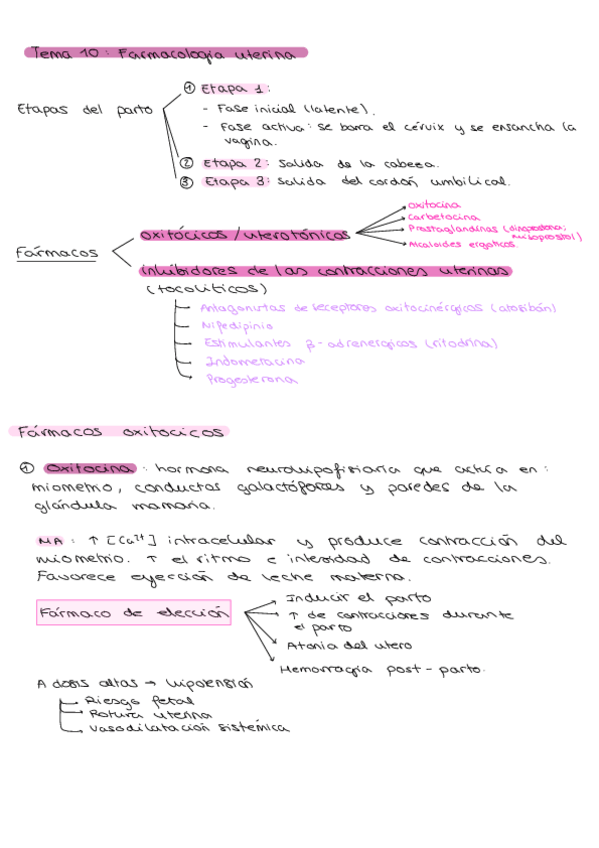 Tema 10: Farmacología uterina
Etapas del parto
① Etapa 1:
- Fase inicial (latente).
- Fase activa: se borra el cérvix y se ensancha la
vagina.
② Etapa 2: Salida de la cabeza.
③ Etapa 3: Salida del cordón umbilical.
Fármacos
oxitócicos / uterotónicos
oxitocina
Carbetocina
Prostaglandinas (dinoprostona,
misoprostol)
Alcaloides ergóticos.
inhibidores de las contracciones uterinas
(tocolíticos)
Antagonistas de receptores oxitocinérgicos (atosibán)
Nifedipinio
Estimulantes β-adrenérgicos (ritodrina)
Indometacina
Progesterona
Fármacos oxitocicos
① Oxitocina: hormona neurohipofisiaria que actúa en:
miometrio, conductos galactóforos y paredes de la
glándula mamaria.
MA: ↑ [Ca²⁺] intracelular y produce contracción del
miometrio. ↑ el ritmo e intensidad de contracciones.
Favorece eyección de leche materna.
Fármaco de elección
Inducir el parto
↑ de contracciones durante
el parto
Atonia del utero
Hemorragia post-parto.
A dosis altas → hipotensión
Riesgo fetal
Rotura uterina
Vasodilatación sistémica